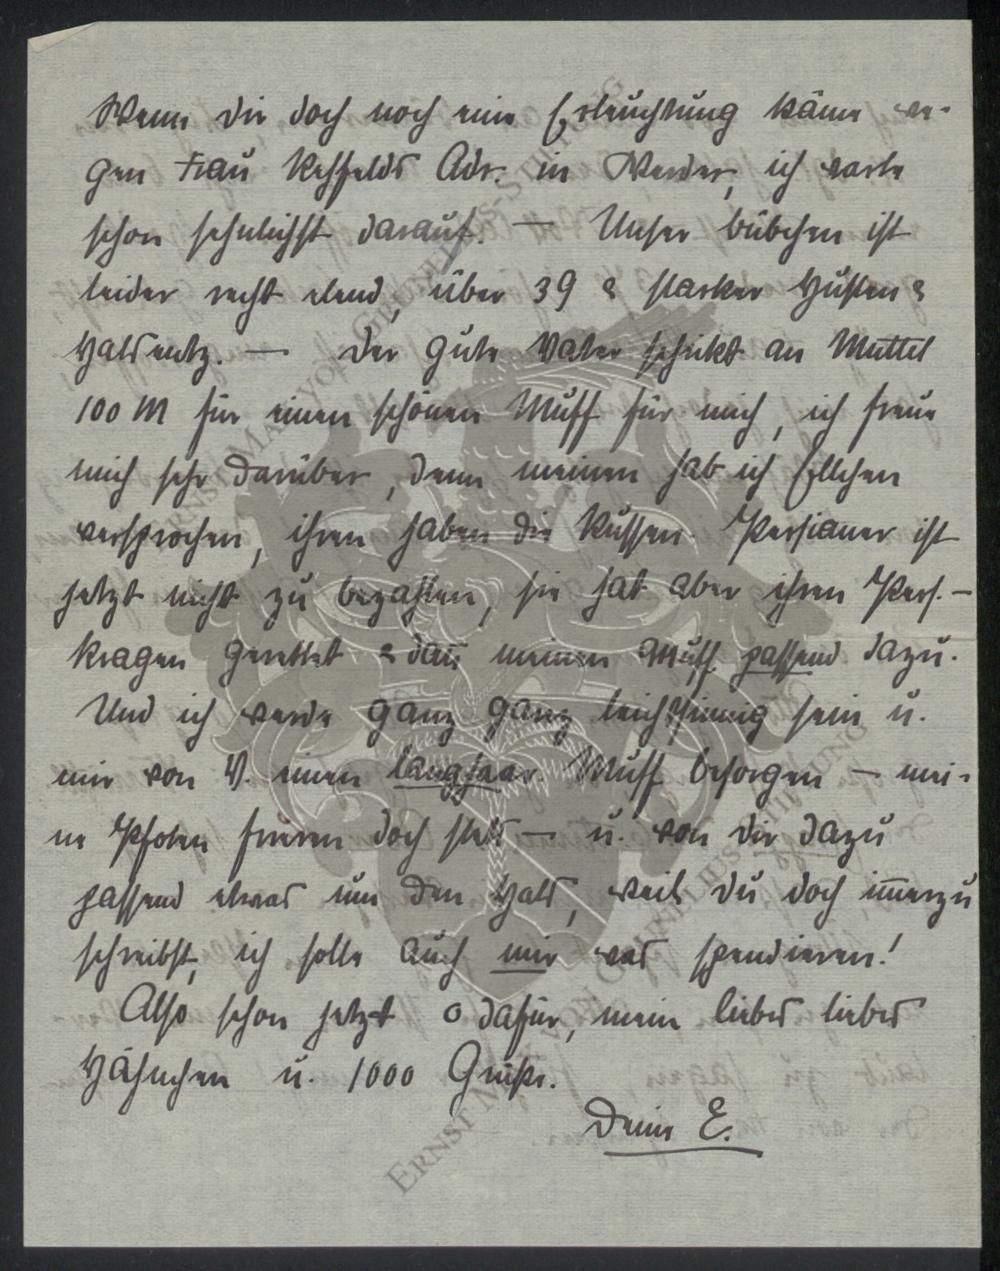 Wenn dir doch noch eine Erleuchtung käme we-
gen Frau Rehfelds Adr. in Werder, ich warte
schon sehnlichst darauf. — Unser Bübchen ist
leider recht elend, über 39 & starker Husten &
Halsentz. — Der gute Vater schickt an Muttel
100 M für einen schönen Muff für mich, ich freue
mich sehr darüber, denn meinen hab ich Ellchen
versprochen, ihren haben die Russen. Persianer ist
jetzt nicht zu bezahlen, sie hat aber ihren Pers.-
kragen gerettet & dazu meinen Muff passend dazu.
Und ich werde ganz ganz leichtsinnig sein u.
mir von V. einen langhaar. Muff besorgen – mei-
ne Pfoten frieren doch stets – u. von dir dazu
passend etwas um den Hals, weil du doch immerzu
schreibst, ich solle auch mir was spendieren!
Also schon jetzt o dafür, mein liebes liebes
Hähnchen u. 1000 Grüße.
Deine E.
ERNST MAYOR GEORGIUS-STIFTUNG